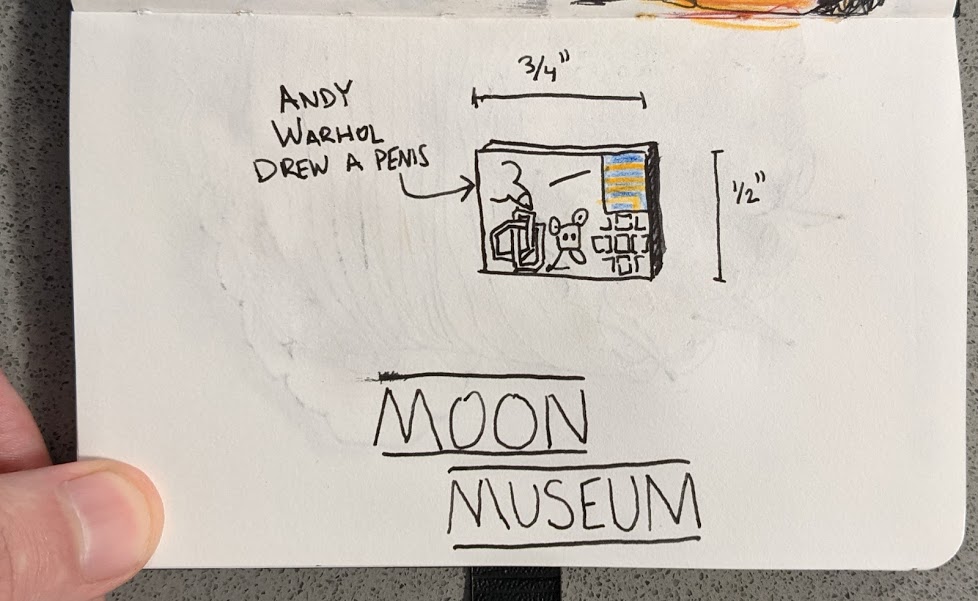 3/4"
ANDY
WARHOL
DREW A PENIS
1/2"
MOON
MUSEUM